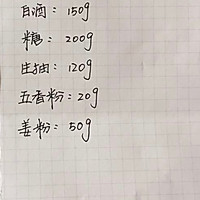 白酒：150g
糖：200g
生抽：120g
五香粉：20g
姜粉：50g